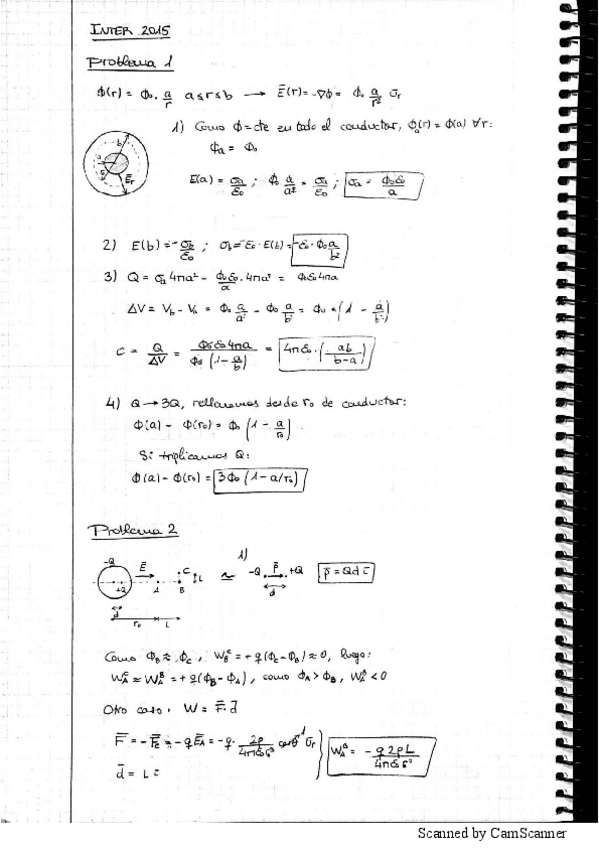 INTER 2015
Problema 1
ϕ(r) = ϕ₀ · a/r  a ≤ r ≤ b → Ē(r) = -∇ϕ = ϕ₀ a/r² ūr
1) Como ϕ = cte en todo el conductor, ϕa(r) = ϕ(a) ∀r:
ϕa = ϕ₀
b
Ēr
E(a) = σa/ε₀ ; ϕ₀ a/a² = σa/ε₀ ; σa = ϕ₀ε₀/a
2) E(b) = -σb/ε₀ ; σb = -ε₀ · E(b) = -ε₀ · ϕ₀a/b²
3) Q = σa 4πa² = ϕ₀ε₀/a · 4πa² = ϕ₀ε₀4πa
C = Q/ΔV = ϕ₀ε₀4πa / ϕ₀(1 - a/b) = 4πε₀ · (ab/(b-a))
4) Q → 3Q, rellenamos desde r₀ de conductor:
ϕ(a) - ϕ(r₀) = ϕ₀ (1 - a/r₀)
Si triplicamos Q:
ϕ(a) - ϕ(r₀) = 3ϕ₀ (1 - a/r₀)
Problema 2
1)
-Q Ē C L ≈ -Q p̄ +Q p̄ = Qd
+Q A B d
d
r₀ L
Como ϕB ≈ ϕC, WBC = +q(ϕC - ϕB) ≈ 0, luego:
WAC ≈ WAB = +q(ϕB - ϕA), como ϕA > ϕB, WAB < 0
Otro caso, W = F̄ · d̄
WAB = - q 2pL / 4πε₀r³
d̄ = L
Scanned by CamScanner